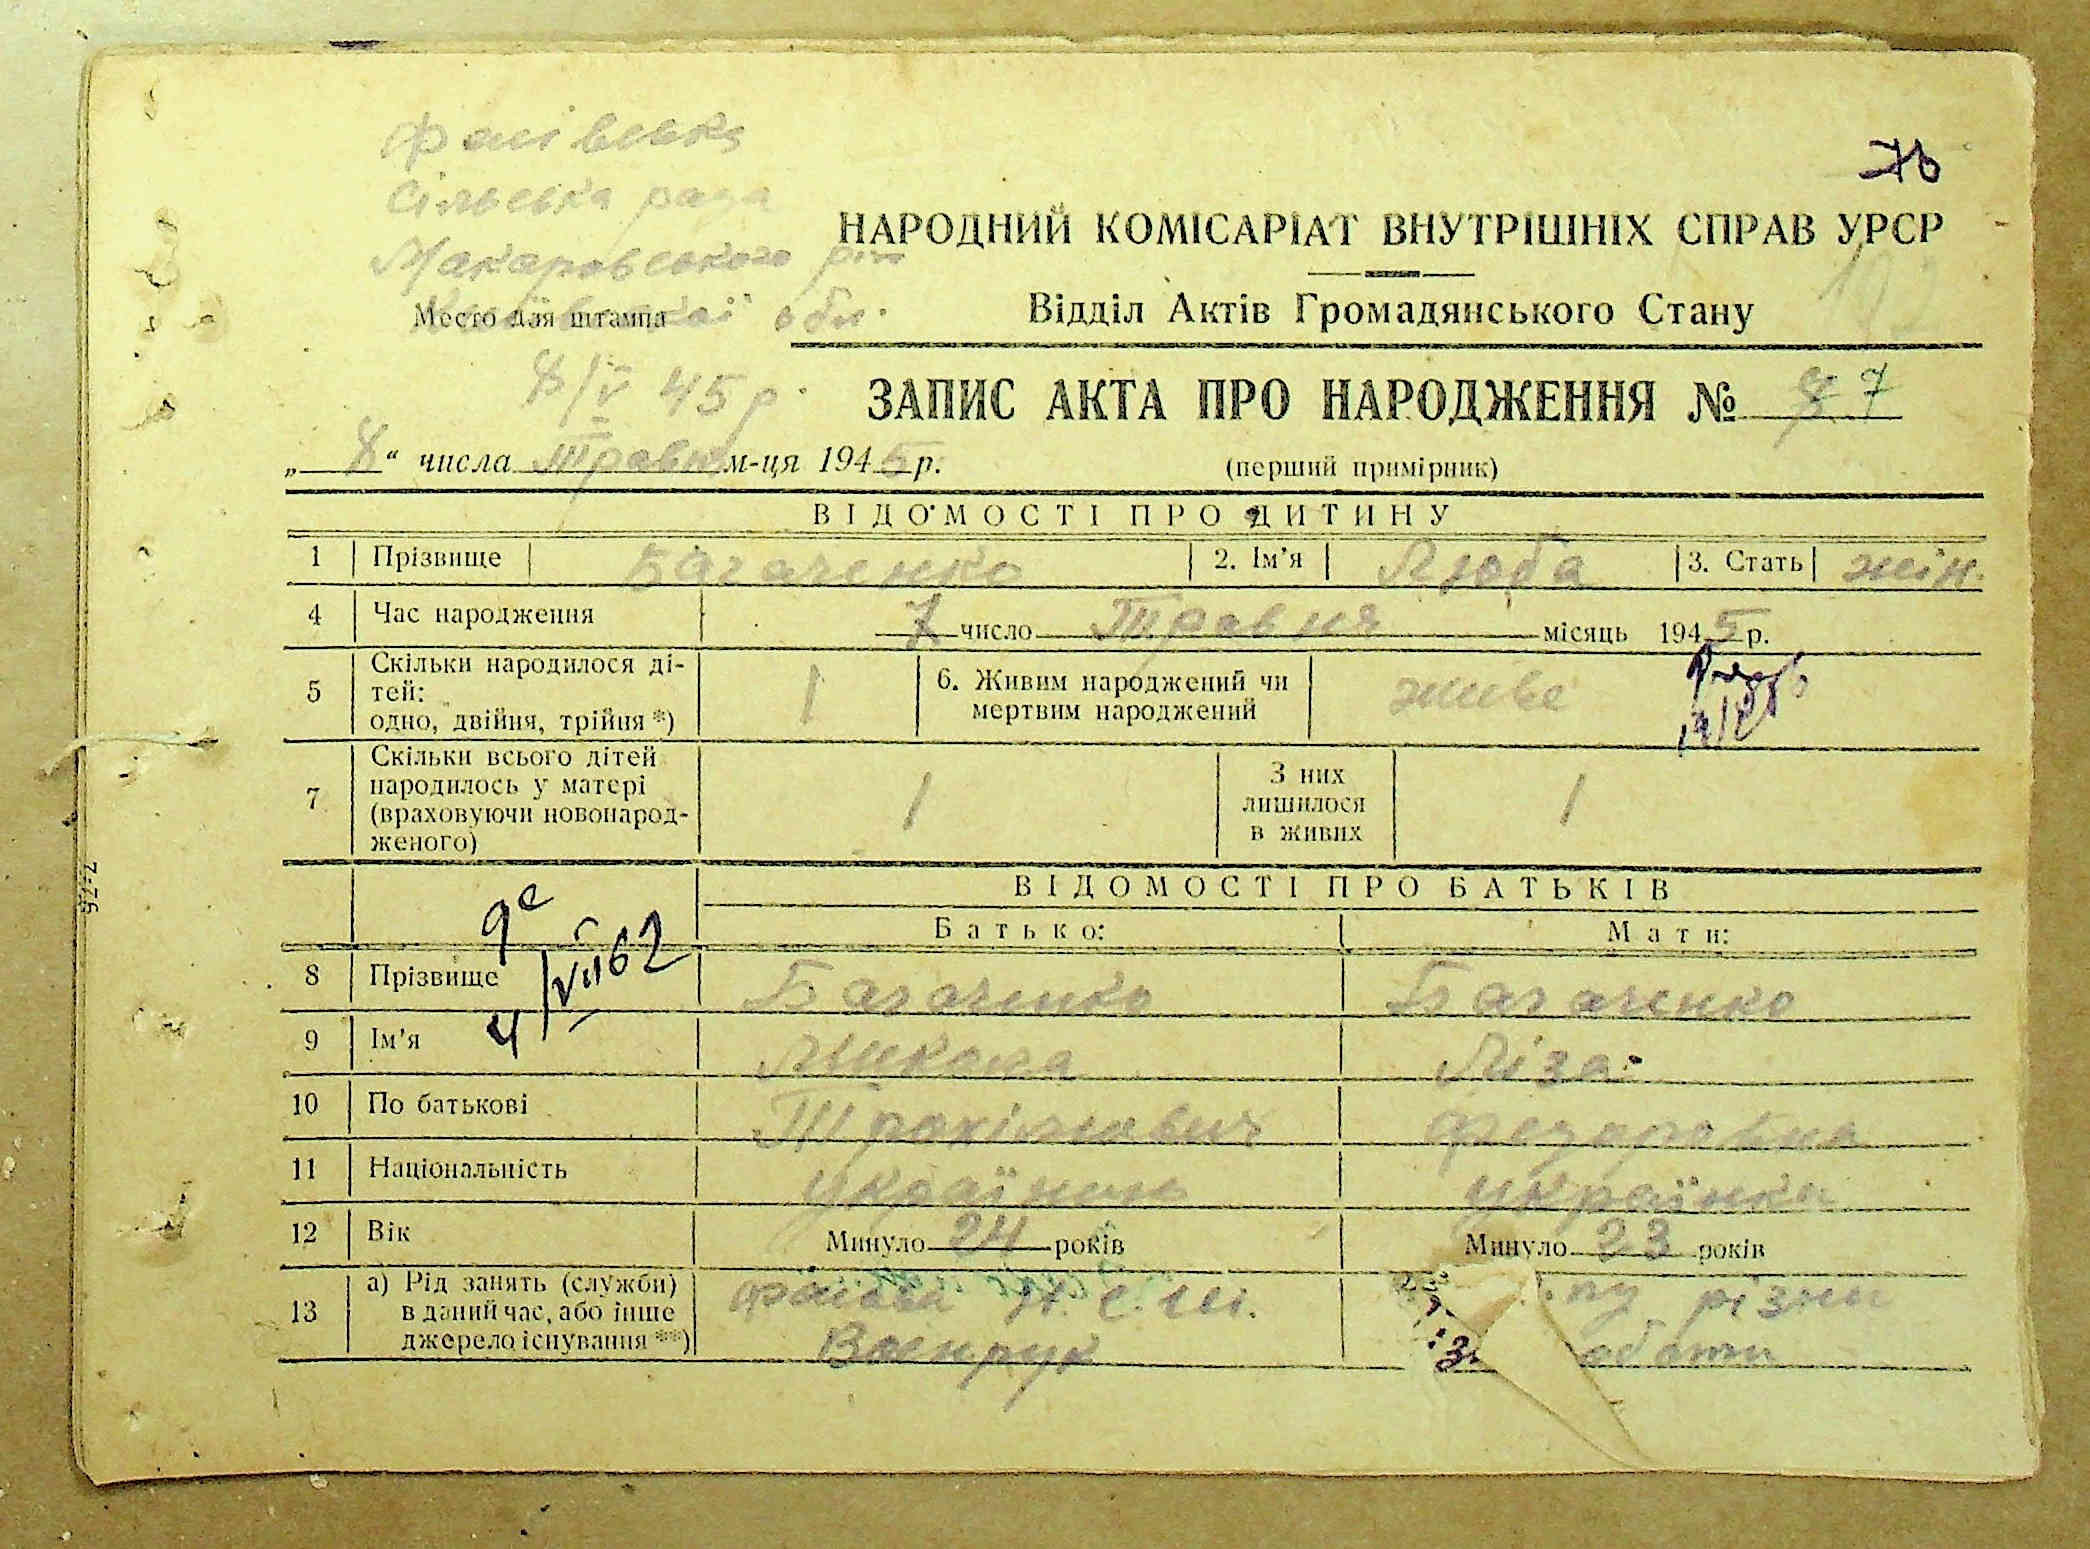 Сільська рада
Макаровського р-ну
Место для штампа
обл.
8/V 45 р.
76
НАРОДНИЙ КОМІСАРІАТ ВНУТРІШНІХ СПРАВ УРСР
Відділ Актів Громадянського Стану
ЗАПИС АКТА ПРО НАРОДЖЕННЯ № 7
„ 8 “ числа Травня м-ця 1945 р.
(перший примірник)
ВІДОМОСТІ ПРО ДИТИНУ
1 Прізвище Багаченко 2. Ім’я Люба 3. Стать жін.
4 Час народження 7 число Травня місяць 1945 р.
5 Скільки народилося ді-
тей:
одно, двійня, трійня *) 1 6. Живим народжений чи
мертвим народжений живе
7 Скільки всього дітей
народилось у матері
(враховуючи новонарод-
женого) 1 З них
лишилося
в живих 1
ВІДОМОСТІ ПРО БАТЬКІВ
Батько: Мати:
4/VII 62
8 Прізвище Багаченко Багаченко
9 Ім’я Микола Ліза
10 По батькові Трохімович Федоровна
11 Національність українець українка
12 Вік Минуло 24 років Минуло 23 років
13 а) Рід занять (служби)
в даний час, або інше
джерело існування **) Н. С. Ш. різни
Военрук